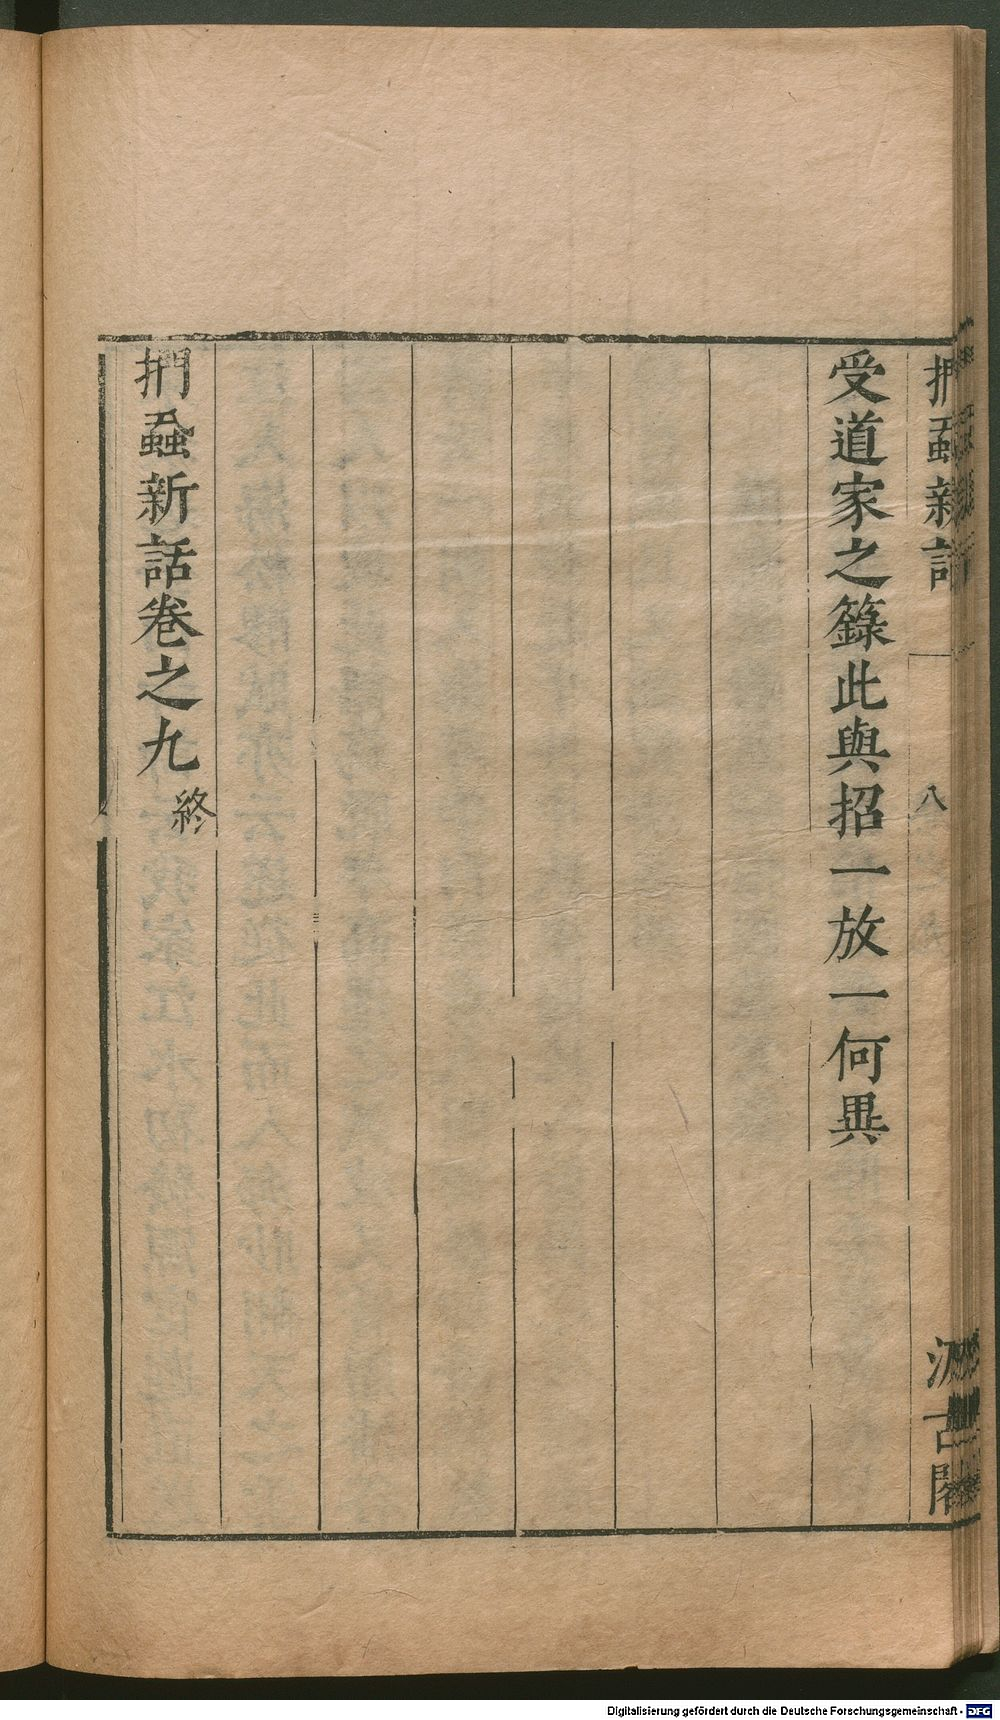 捫蝨新話
八
汲古閣
受道家之籙此與招一放一何異
捫蝨新話卷之九
終
Digitalisierung gefördert durch die Deutsche Forschungsgemeinschaft - DFG